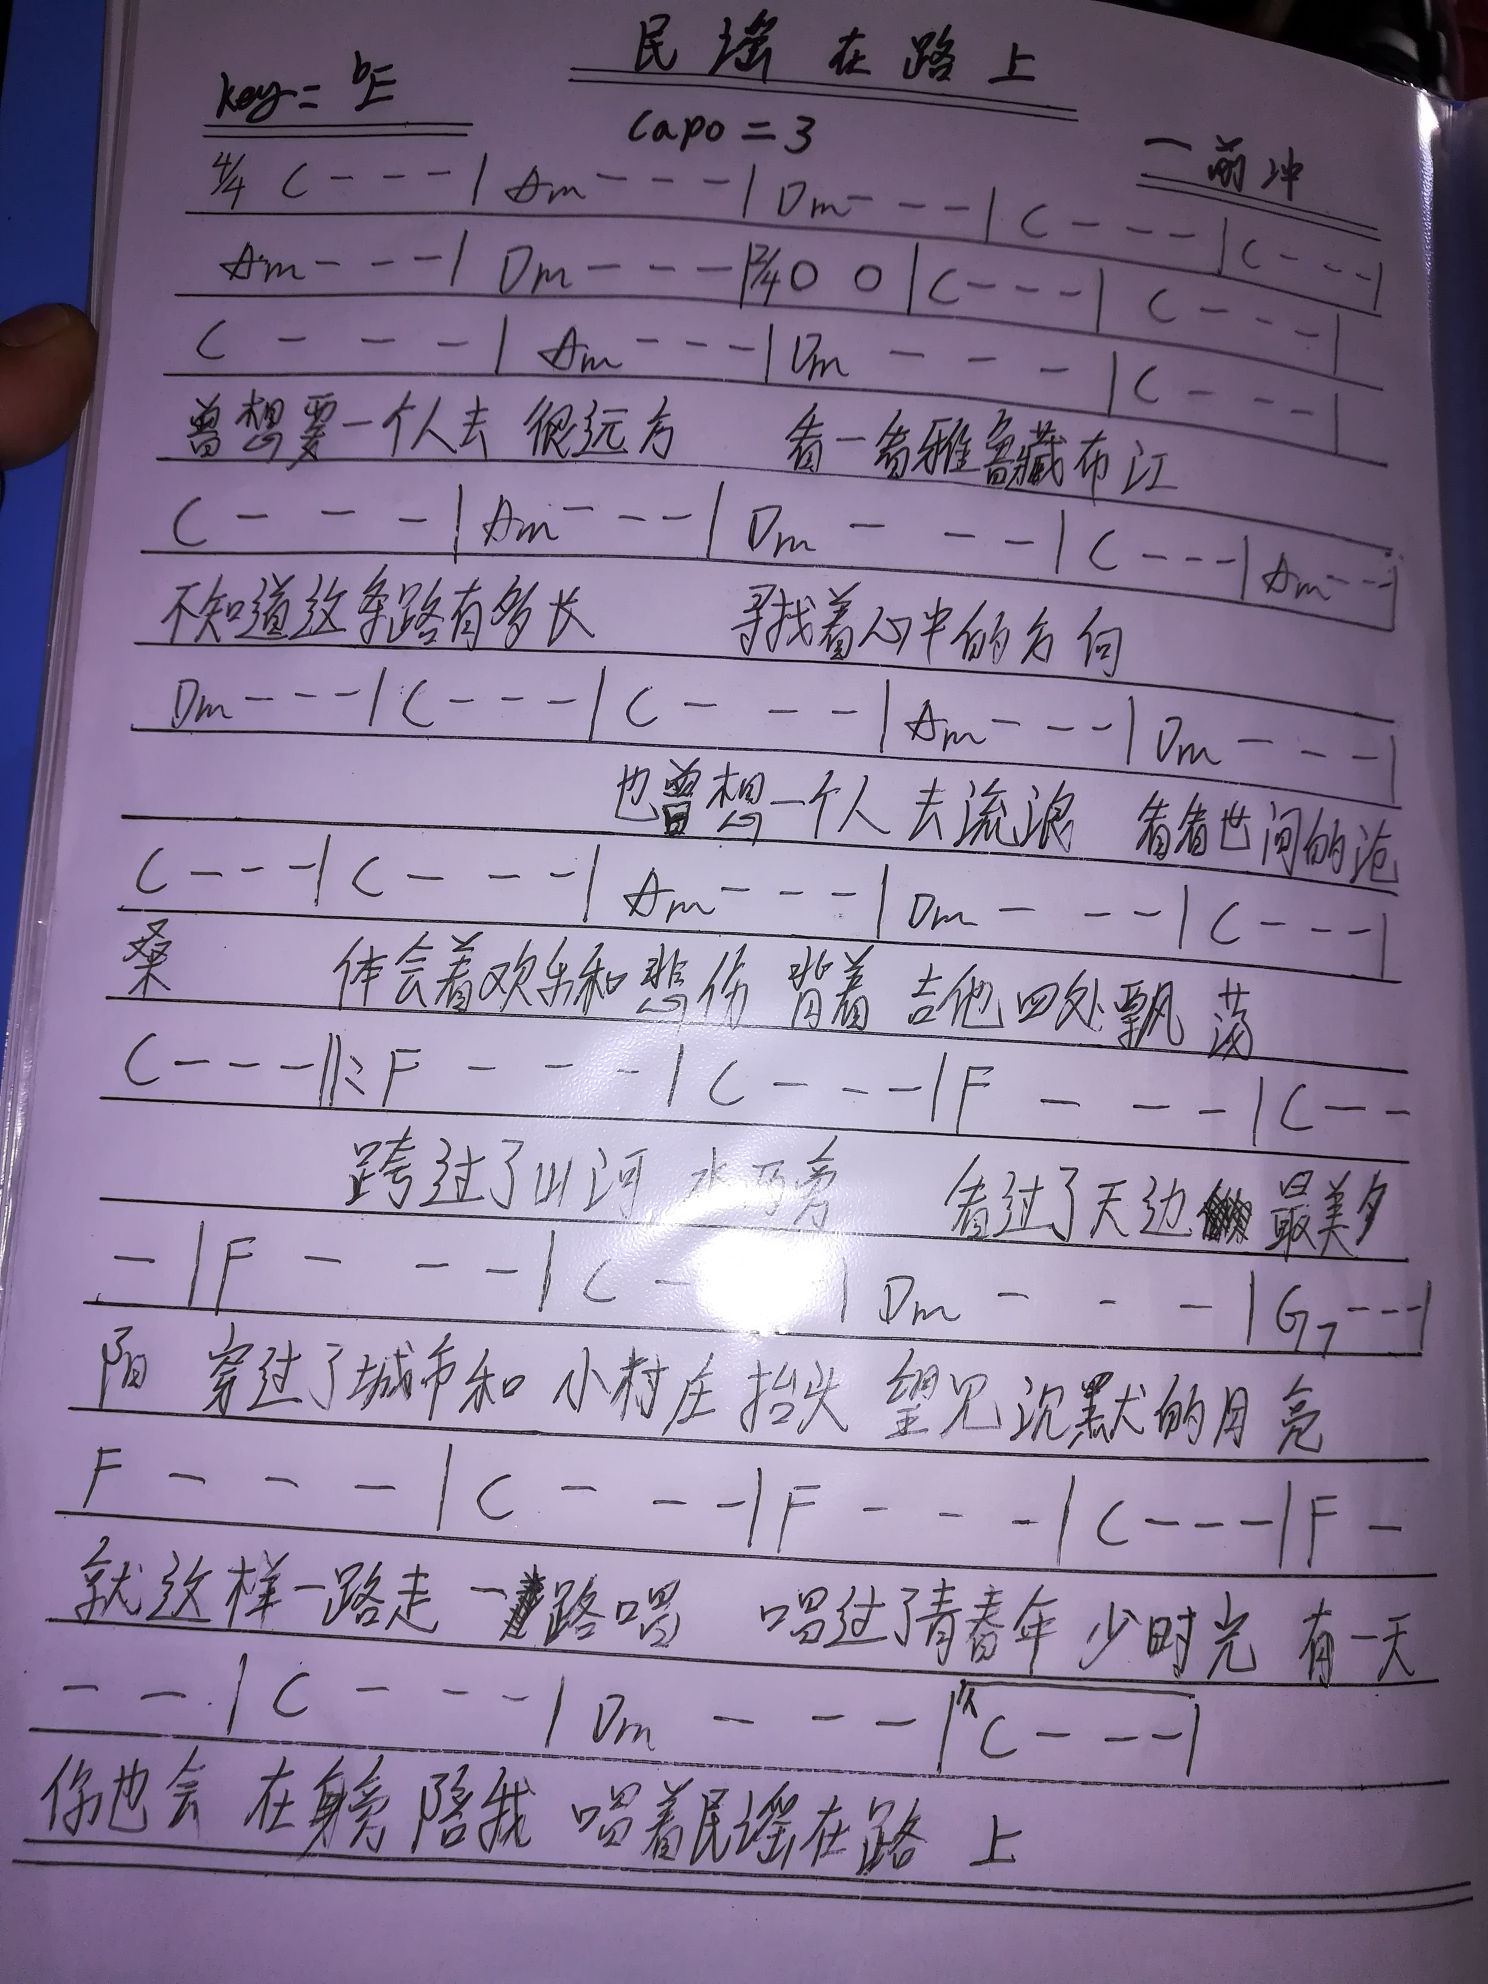 民谣在路上
key= bE
capo=3
一萌冲
4/4 C - - - | Am - - - | Dm - - - | C - - - | C - - - |
Am - - - | Dm - - - | 2/4 0 0 | C - - - | C - - - |
C - - - | Am - - - | Dm - - - | C - - - |
曾想要一个人去 很远方 看一看雅鲁藏布江
C - - - | Am - - - | Dm - - - | C - - - | Am - - - |
不知道这条路有多长 寻找着心中的方向
Dm - - - | C - - - | C - - - | Am - - - | Dm - - - |
也曾想一个人 去流浪 看看世间的沧
C - - - | C - - - | Am - - - | Dm - - - | C - - - |
桑 体会着欢乐和悲伤 背着 吉他四处飘 荡
C - - - ‖: F - - - | C - - - | F - - - | C - -
跨过了山河 水 看过了天边 最美夕
- | F - - - | C - | Dm - - - | G7 - - - |
阳 穿过了城市和 小村庄 抬头 望见沉默的月亮
F - - - | C - - - | F - - - | C - - - | F -
就这样一路走 一路唱 唱过了青春年 少时光 有一天
- - | C - - - | Dm - - - | C - - - |
你也会 在身旁 陪我 唱着民谣在路 上